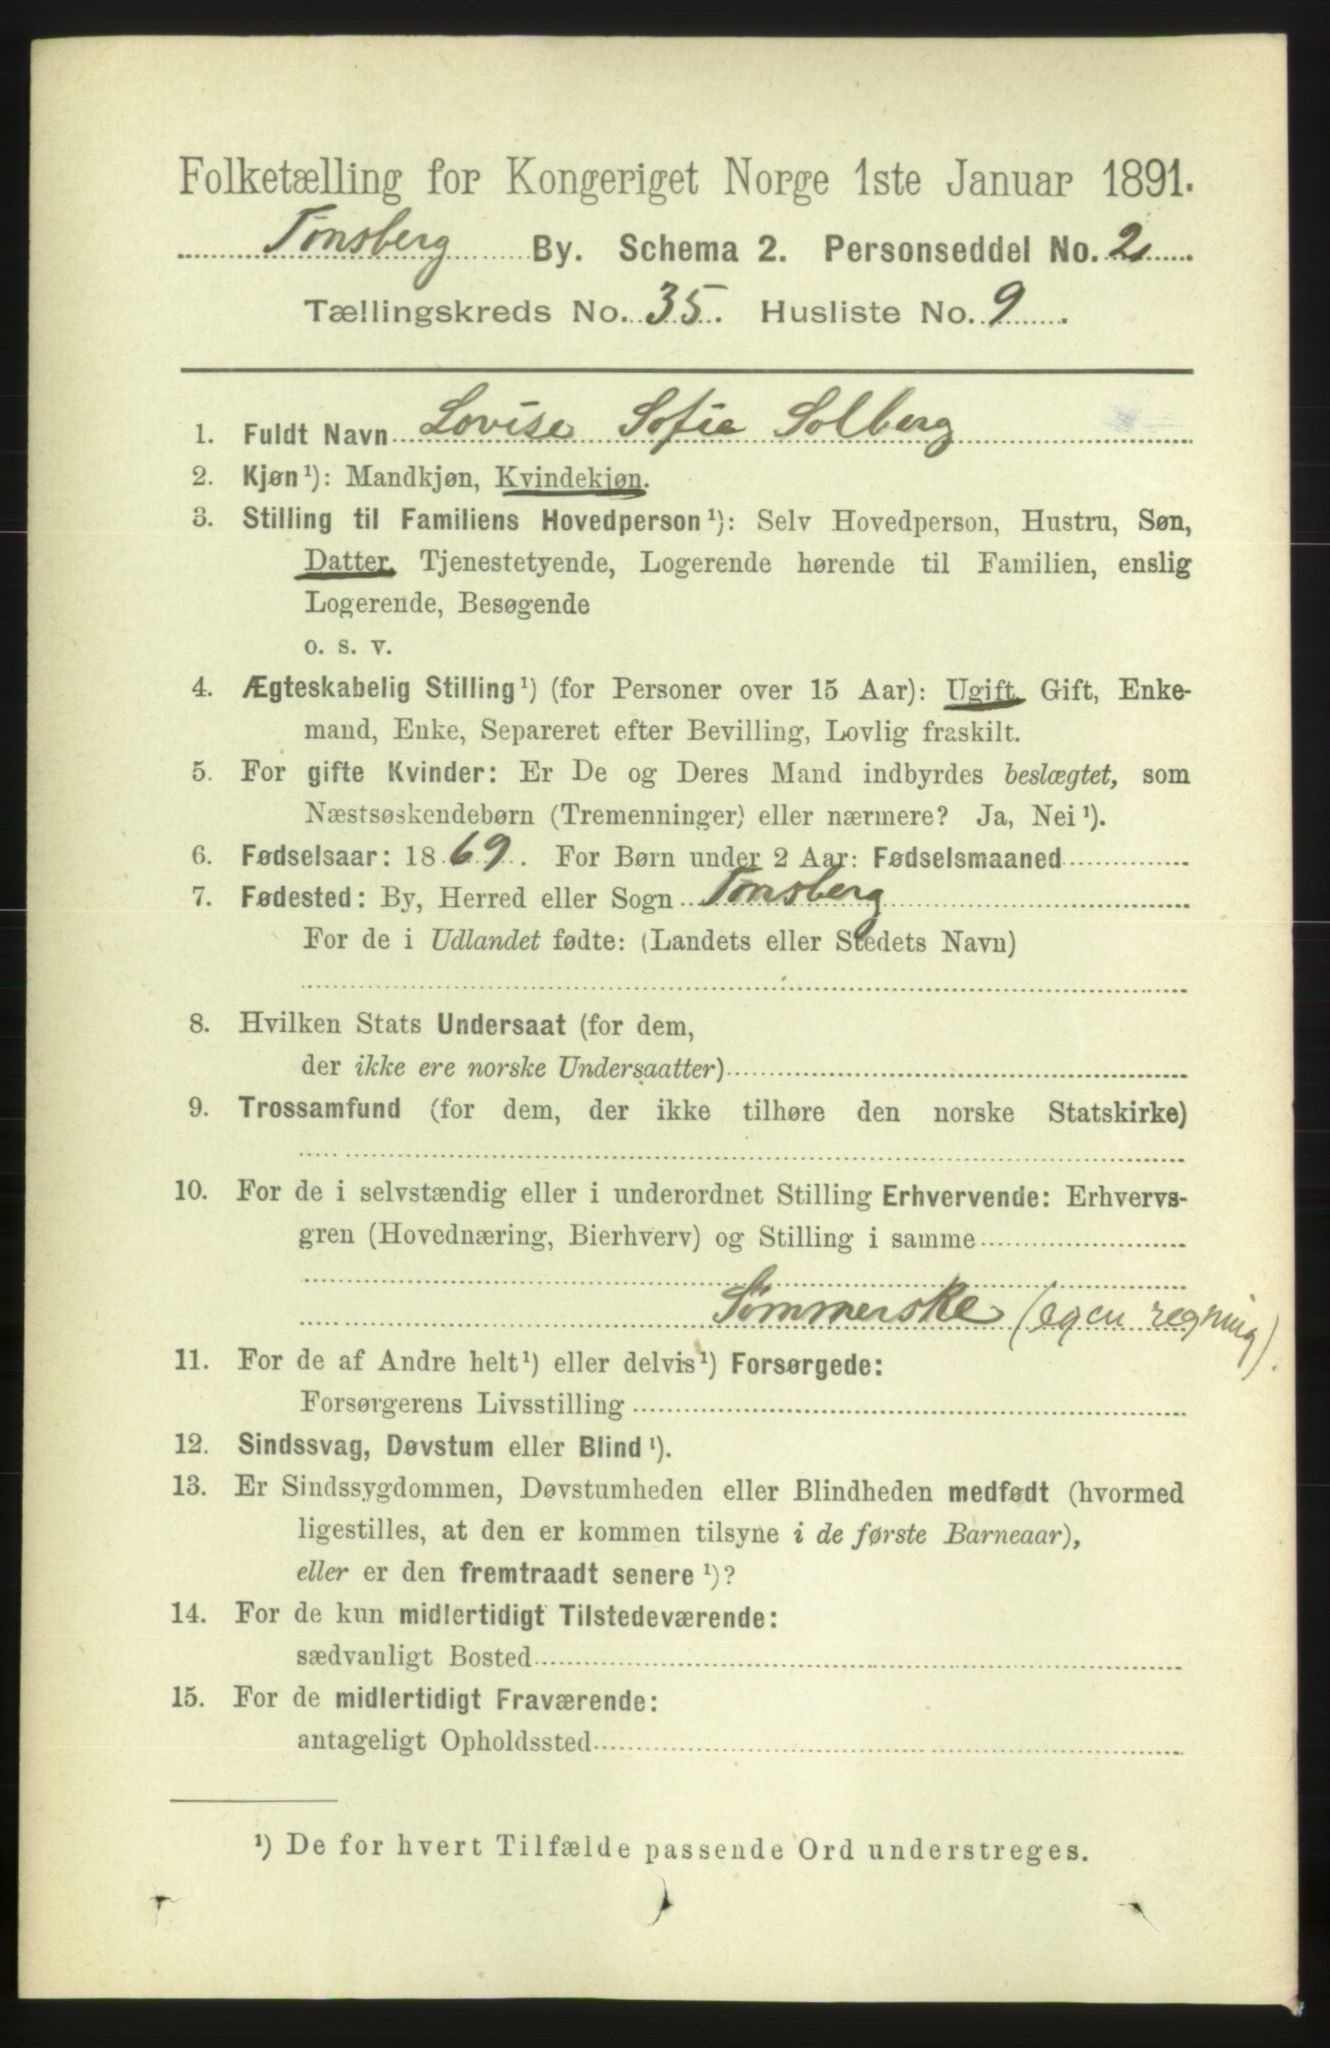 Folketælling for Kongeriget Norge 1ste Januar 1891.
Tønsberg By. Schema 2. Personseddel No. 2
Tællingskreds No. 35. Husliste No. 9
1. Fuldt Navn Lovise Sofie Solberg
2. Kjøn¹): Mandkjøn, Kvindekjøn.
3. Stilling til Familiens Hovedperson¹): Selv Hovedperson, Hustru, Søn,
Datter, Tjenestetyende, Logerende hørende til Familien, enslig
Logerende, Besøgende
o. s. v.
4. Ægteskabelig Stilling¹) (for Personer over 15 Aar): Ugift, Gift, Enke-
mand, Enke, Separeret efter Bevilling, Lovlig fraskilt.
5. For gifte Kvinder: Er De og Deres Mand indbyrdes beslægtet, som
Næstsøskendebørn (Tremenninger) eller nærmere? Ja, Nei¹).
6. Fødselsaar: 1869. For Børn under 2 Aar: Fødselsmaaned
7. Fødested: By, Herred eller Sogn Tønsberg
For de i Udlandet fødte: (Landets eller Stedets Navn)
8. Hvilken Stats Undersaat (for dem,
der ikke ere norske Undersaatter)
9. Trossamfund (for dem, der ikke tilhøre den norske Statskirke)
10. For de i selvstændig eller i underordnet Stilling Erhvervende: Erhvervs-
gren (Hovednæring, Bierhverv) og Stilling i samme
Sømmerske (egen regning).
11. For de af Andre helt¹) eller delvis¹) Forsørgede:
Forsørgerens Livsstilling
12. Sindssvag, Døvstum eller Blind¹).
13. Er Sindssygdommen, Døvstumheden eller Blindheden medfødt (hvormed
ligestilles, at den er kommen tilsyne i de første Barneaar),
eller er den fremtraadt senere¹)?
14. For de kun midlertidigt Tilstedeværende:
sædvanligt Bosted
15. For de midlertidigt Fraværende:
antageligt Opholdssted
¹) De for hvert Tilfælde passende Ord understreges.